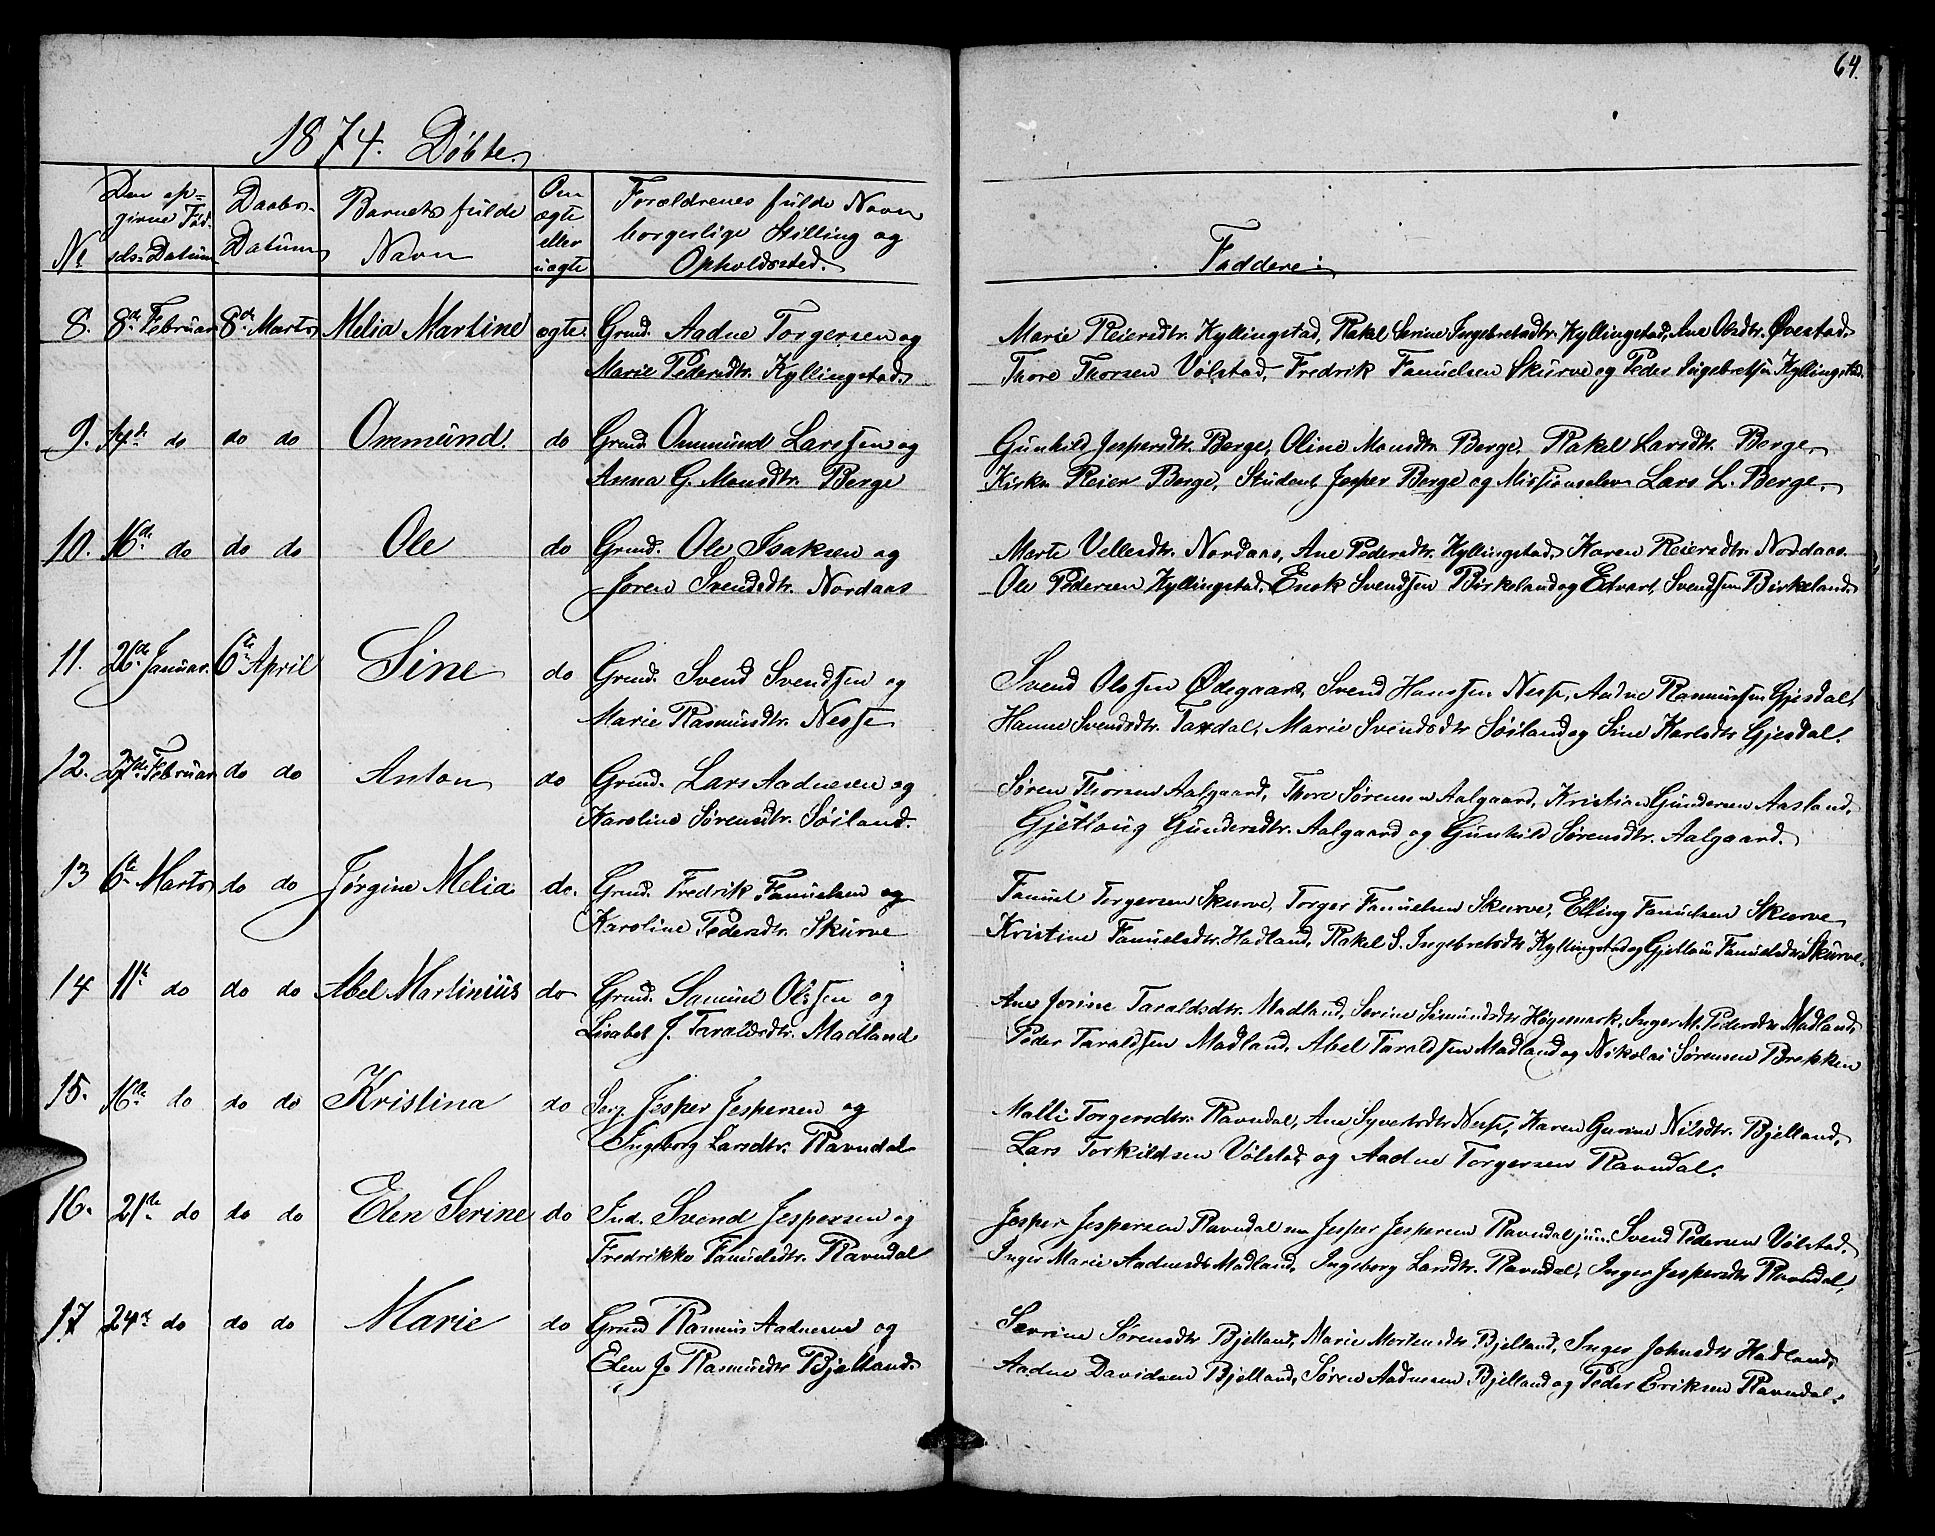 64.
1874. Døbte.
No
Den op=
givne Fød-
sels-Datum
Daabs-
Datum
Barnets fulde
Navn
Om
ægte
eller
uægte
Forældrenes fulde Navn
borgerlige Stilling og
Opholdssted.
Faddere:
8. 8de Februar 8de Marts Melia Martine ægte. Grmd. Aadne Torgersen og
Marie Pedersdtr. Kyllingstad
Marie Reiersdtr. Kyllingstad, Rakel Serine Ingebretsdtr. Kyllingstad, Ane Olsdtr. Øvestad
Thore Thorsen Vølstad, Fredrik Fanuelsen Skurve og Peder Ingebretsen Kyllingstad.
9. 14de do do do Ommund. do Grmd. Ommund Larssen og
Anna G. Monsdtr. Berge
Gunhild Jespersdtr. Berge, Oline Monsdtr. Berge. Rakel Larsdtr. Berge,
Kirks. Reier Berge, Student Jesper Berge og Missionselev Lars L. Berge.
10. 16de do do do Ole do Grmd. Ole Isaksen og
Joren Svendsdtr. Nordaas
Marte Vellesdtr. Nordaas, Ane Pedersdtr. Kyllingstad, Karen Reiersdtr. Nordaas
Ole Pedersen Kyllingstad, Enok Svendsen Birkeland og Edvart Svendsen Birkeland.
11. 26de Januar. 6te April Sine do Grmd. Svend Svendsen og
Marie Rasmusdtr. Nesse
Svend Olssen Ødegaard, Svend Hanssen Nesse, Aadne Rasmussen Gjesdal,
Hanne Svendsdtr. Taxdal, Marie Svendsdtr Søiland og Sine Karlsdtr Gjesdal.
12. 27de Februar do do Anton do Grmd. Lars Aadnesen og
Karoline Sørensdtr. Søiland.
Søren Thorsen Aalgaard, Thore Sørensen Aalgaard, Kristian Gundersen Aasland,
Gjetloug Gundersdtr. Aalgaard og Gunhild Sørensdtr. Aalgaard.
13 6te Marts do do Jørgine Melia do. Grmd. Fredrik Fanuelsen og
Karoline Pedersdtr. Skurve
Fanuel Torgersen Skurve, Torger Fanuelsen Skurve, Elling Fanuelsen Skurve
Kristine Fanuelsdtr. Hadland, Rakel S. Ingebretsdtr Kyllingstad og Gjetlou Fanuelsdtr Skurve.
14 11te do do do Abel Martinius do Grmd. Samuel Olssen og
Lisabet J. Taraldsdtr. Madland
Ane Josine Taraldsdtr. Madland, Serine Simundsdtr Høgemark, Inger M. Pedersdtr Madland,
Peder Taraldsen Madland, Abel Taraldsen Madland og Nikolai Sørensen Brekken
15. 16de do do do Kristina do Jesper Jespersen og
Ingeborg Larsdtr. Ravndal
Malli Torgersdtr. Ravndal, Ane Syvertsdtr Nesse, Karen Gurine Nilsdtr. Bjelland,
Lars Torkildsen Vølstad og Aadne Torgersen Ravndal.
16. 21de do do do Elen Serine do Ind. Svend Jespersen og
Fredrikke Fanuelsdtr. Ravndal
Jesper Jespersen Ravndal sen Jesper Jespersen Ravndal jun. Svend Pedersen Vølstad.
Inger Marie Aadnesdtr Madland, Ingeborg Larsdtr. Ravndal, Inger Jespersdtr Ravndal,
17 24de do do do Marie do Grmd Rasmus Aadnesen og
Elen J. Rasmusdtr Bjelland.
Serine Sørensdtr Bjelland, Marie Mortensdtr Bjelland, Inger Johnsdtr Hadland,
Aadne Davidsen Bjelland, Søren Aadnesen Bjelland og Peder Eriksen Ravndal.